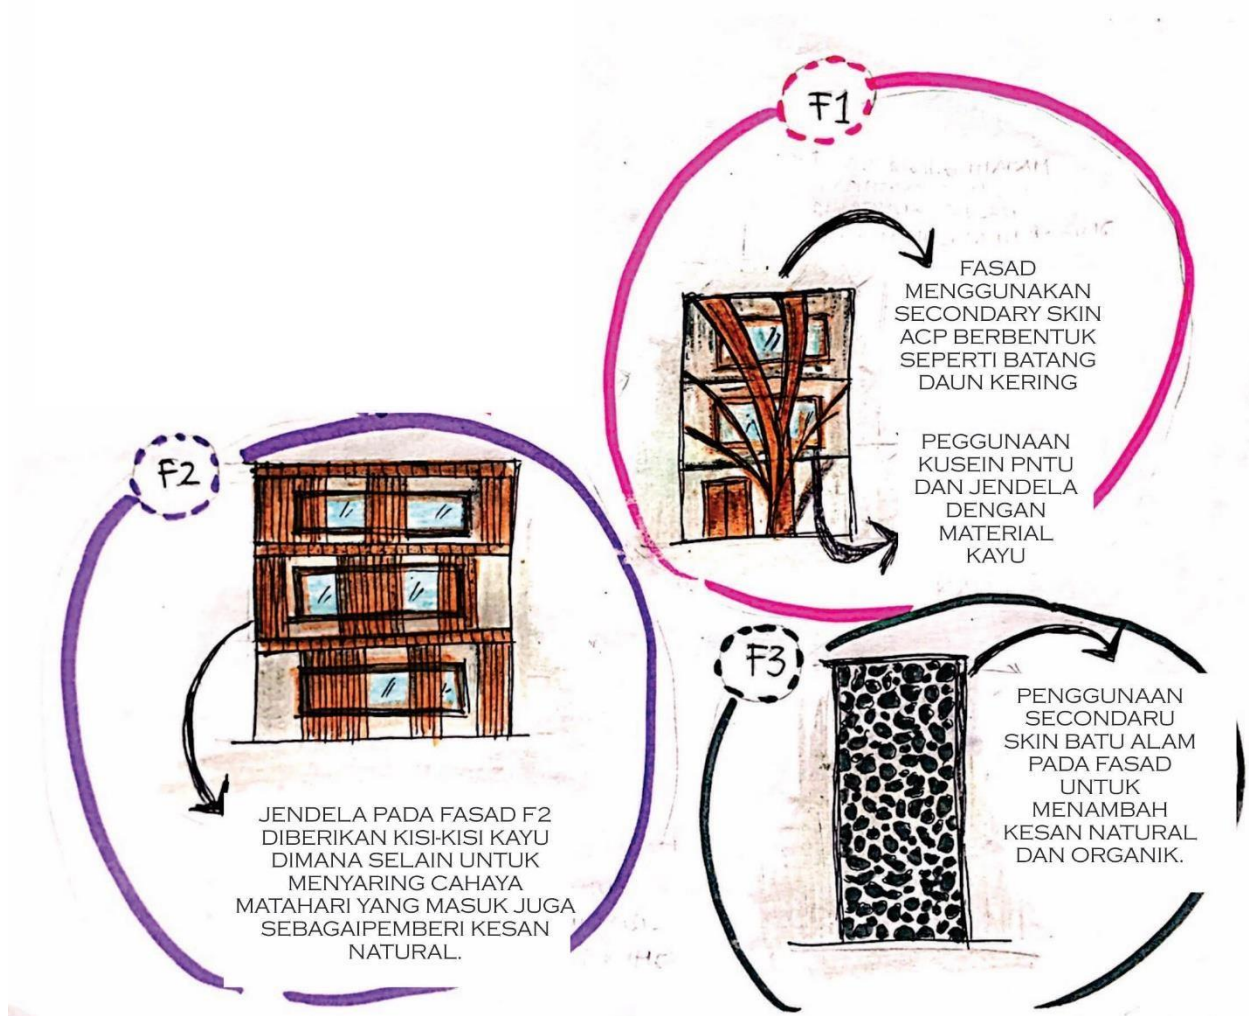 F1
FASAD
MENGGUNAKAN
SECONDARY SKIN
ACP BERBENTUK
SEPERTI BATANG
DAUN KERING
PEGGUNAAN
KUSEIN PNTU
DAN JENDELA
DENGAN
MATERIAL
KAYU
F2
JENDELA PADA FASAD F2
DIBERIKAN KISI-KISI KAYU
DIMANA SELAIN UNTUK
MENYARING CAHAYA
MATAHARI YANG MASUK JUGA
SEBAGAIPEMBERI KESAN
NATURAL.
F3
PENGGUNAAN
SECONDARU
SKIN BATU ALAM
PADA FASAD
UNTUK
MENAMBAH
KESAN NATURAL
DAN ORGANIK.